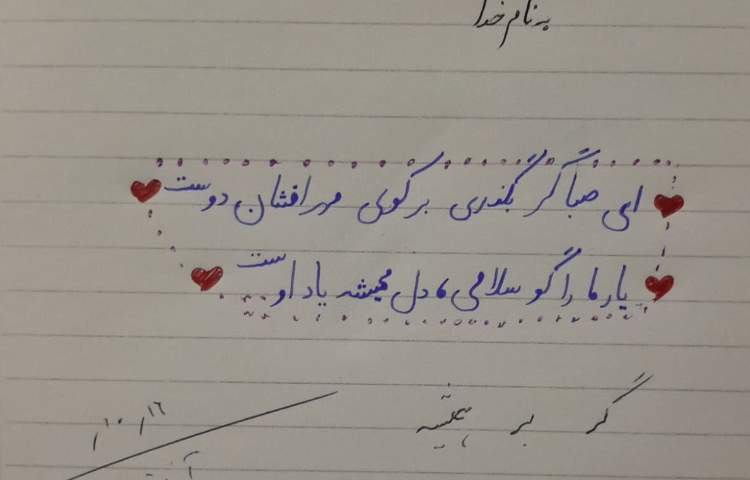 به نام خدا
ای صبا گر بگذری بر کوی مهر افشان دوست
یار ما را گو سلامی، دل همیشه یاد اوست
گر بر
۱۰/۱۶/